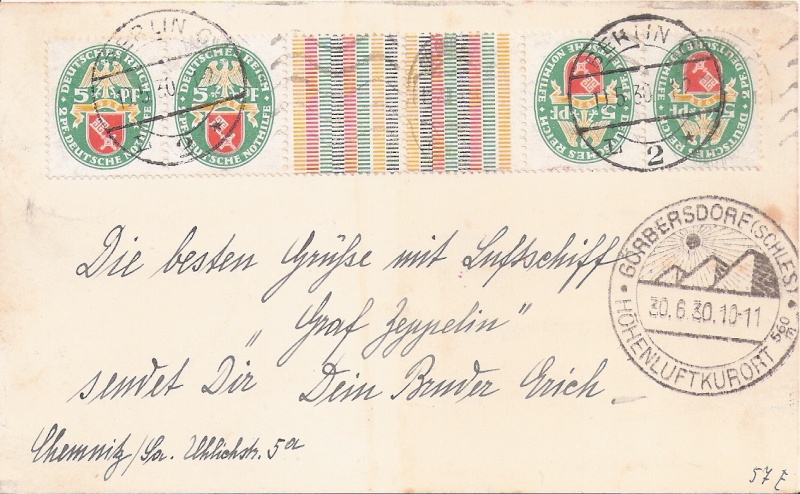 DEUTSCHES REICH
5 PF
2 PF. DEUTSCHE NOTHILFE
DEUTSCHES REICH
5 PF
DEUTSCHE NOTHILFE
5 PF
DEUTSCHES REICH
DEUTSCHE NOTHILFE
5 PF
DEUTSCHES REICH
BERLIN
BERLIN
11.5.30
2
GÖRBERSDORF (SCHLES)
30.6.30.10-11
HÖHENLUFTKURORT 560 m
Die besten Grüße mit Luftschiff
„Graf Zeppelin"
sendet Dir Dein Bruder Erich
Chemnitz/Sa. Uhlichstr. 5a
57 E